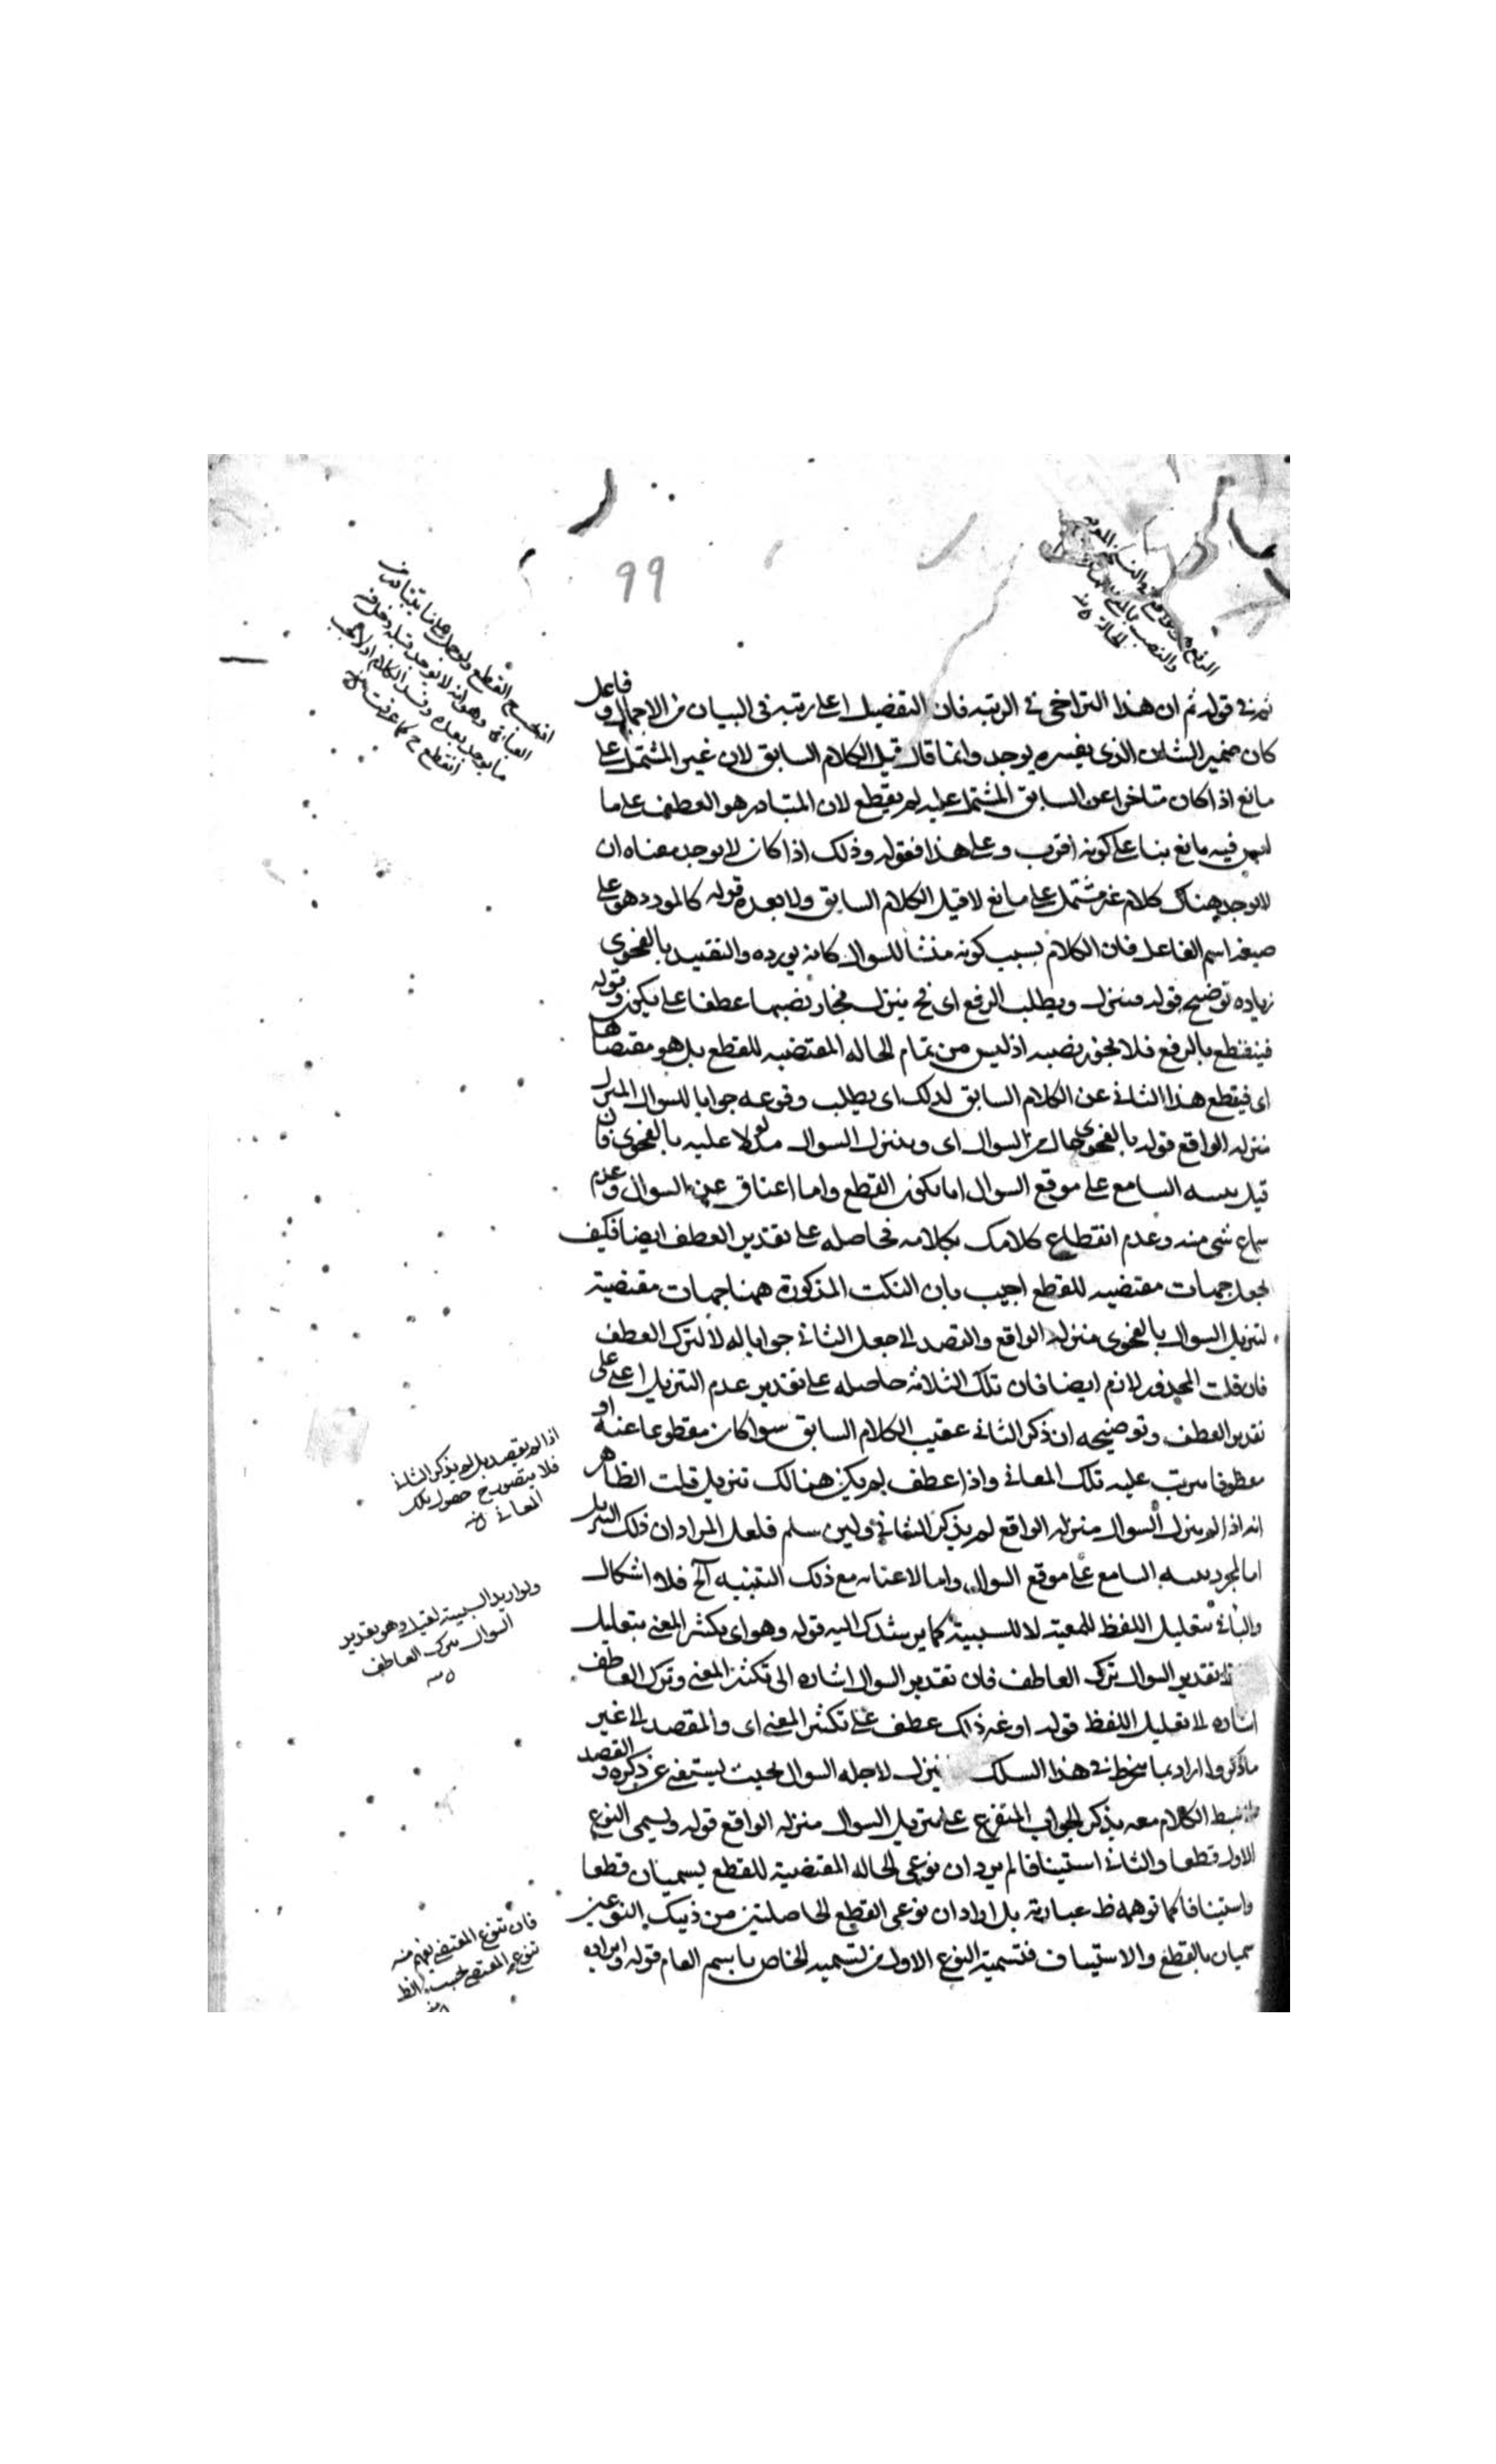 99
ثم في قوله ثم ان هذا التراخي في الرتبه فان التفصيل اعلى رتبه في البيان من الاجمال و فاعل
كان ضمير الشان الذي يفسره يوجد وانما قال قبل الكلام السابق لان غير المشتمل على
مانع اذا كان متاخرا عن السابق المشتمل عليه لم يقطع لان المتبادر هو العطف على ما
ليس فيه مانع بنا على كونه اقرب وعلى هذا فقوله وذلك اذا كان لا يوجد معناه ان
لا يوجد هناك كلام غير مشتمل على مانع لا قبل الكلام السابق ولا بعده قوله كالمورد هو على
صيغه اسم الفاعل فان الكلام بسبب كونه منشأ للسوال كانه يورده والتقييد بالفحوى
زياده توضيح قوله فينزل ويطلب الرفع اى فح ينزل مجاز نصبهما عطفا على يكون وقوله
فينقطع بالرفع فلا يجوز نصبه اذ ليس من تمام الحاله المقتضيه للقطع بل هو مقتضاها
اى فيقطع هذا الثاني عن الكلام السابق لذلك اى يطلب وقوعه جوابا للسوال المنزل
منزله الواقع قوله بالفحوى حال من السوال اى وينزل السوال مدلولا عليه بالفحوى فان
قيل تنبيه السامع على موقع السوال اما يكون القطع واما اغناؤه عن السوال وعدم
سماع شى منه وعدم انقطاع كلامك بكلامه فحاصله على تقدير العطف ايضا فكيف
يجعل جهات مقتضيه للقطع اجيب بان النكت المذكورة ههنا جهات مقتضية
لتنزيل السوال بالفحوى منزله الواقع والقصد الى جعل الثاني جوابا له لا لترك العطف
فان قلت المحذور لازم ايضا فان تلك الثلاثه حاصله على تقدير عدم التنزيل اعنى على
تقدير العطف وتوضيحه ان ذكر الثاني عقيب الكلام السابق سوا كان مقطوعا عنه او
معطوفا يترتب عليه تلك المعاني واذا عطف لم يكن هنالك تنزيل قلت الظاهر
انه اذا لم ينزل السوال منزله الواقع لم يذكر الثاني ولين سلم فلعل المراد ان ذلك التنزيل
اما لمجرد تنبيه السامع على موقع السوال واما لاغنائه مع ذلك التنبيه الخ فلا اشكال
والباء في بتقليل اللفظ للمعية لا للسببية كما يرشدك اليه قوله وهو اى تكثير المعنى بتقليل
تقدير السوال وترك العاطف فان تقدير السوال اشاره الى تكثير المعنى وترك العاطف
اشاره الى تقليل اللفظ قوله او غير ذلك عطف على تكثير المعنى اى والمقصد الى غير
ما ذكر واراد بما ينخرط في هذا السلك ينزل لاجله السوال بحيث يستغنى عن ذكره والقصد
الكلام معه بذكر الجواب المتفرع على تنزيل السوال منزله الواقع قوله ويسمى النوع
الاول قطعا والثاني استينافا لم يرد ان نوعى الحاله المقتضية للقطع يسميان قطعا
واستينافا كما توهمه ظ عبارته بل اراد ان نوعى القطع الحاصلين من ذينك النوعين
يسميان بالقطع والاستيناف فتسمية النوع الاول من تسميه الخاص باسم العام قوله وايراده
اذا لم يقصد بل لم يذكر الثاني
فلا يتصور ح حصول تلك
المعاني منه
ولو اريد السببية لقيل وهو بتقدير
السوال وترك العاطف
منه
فان تنوع المقتضي يفهم منه
تنوع المقتضى بحسب الظ